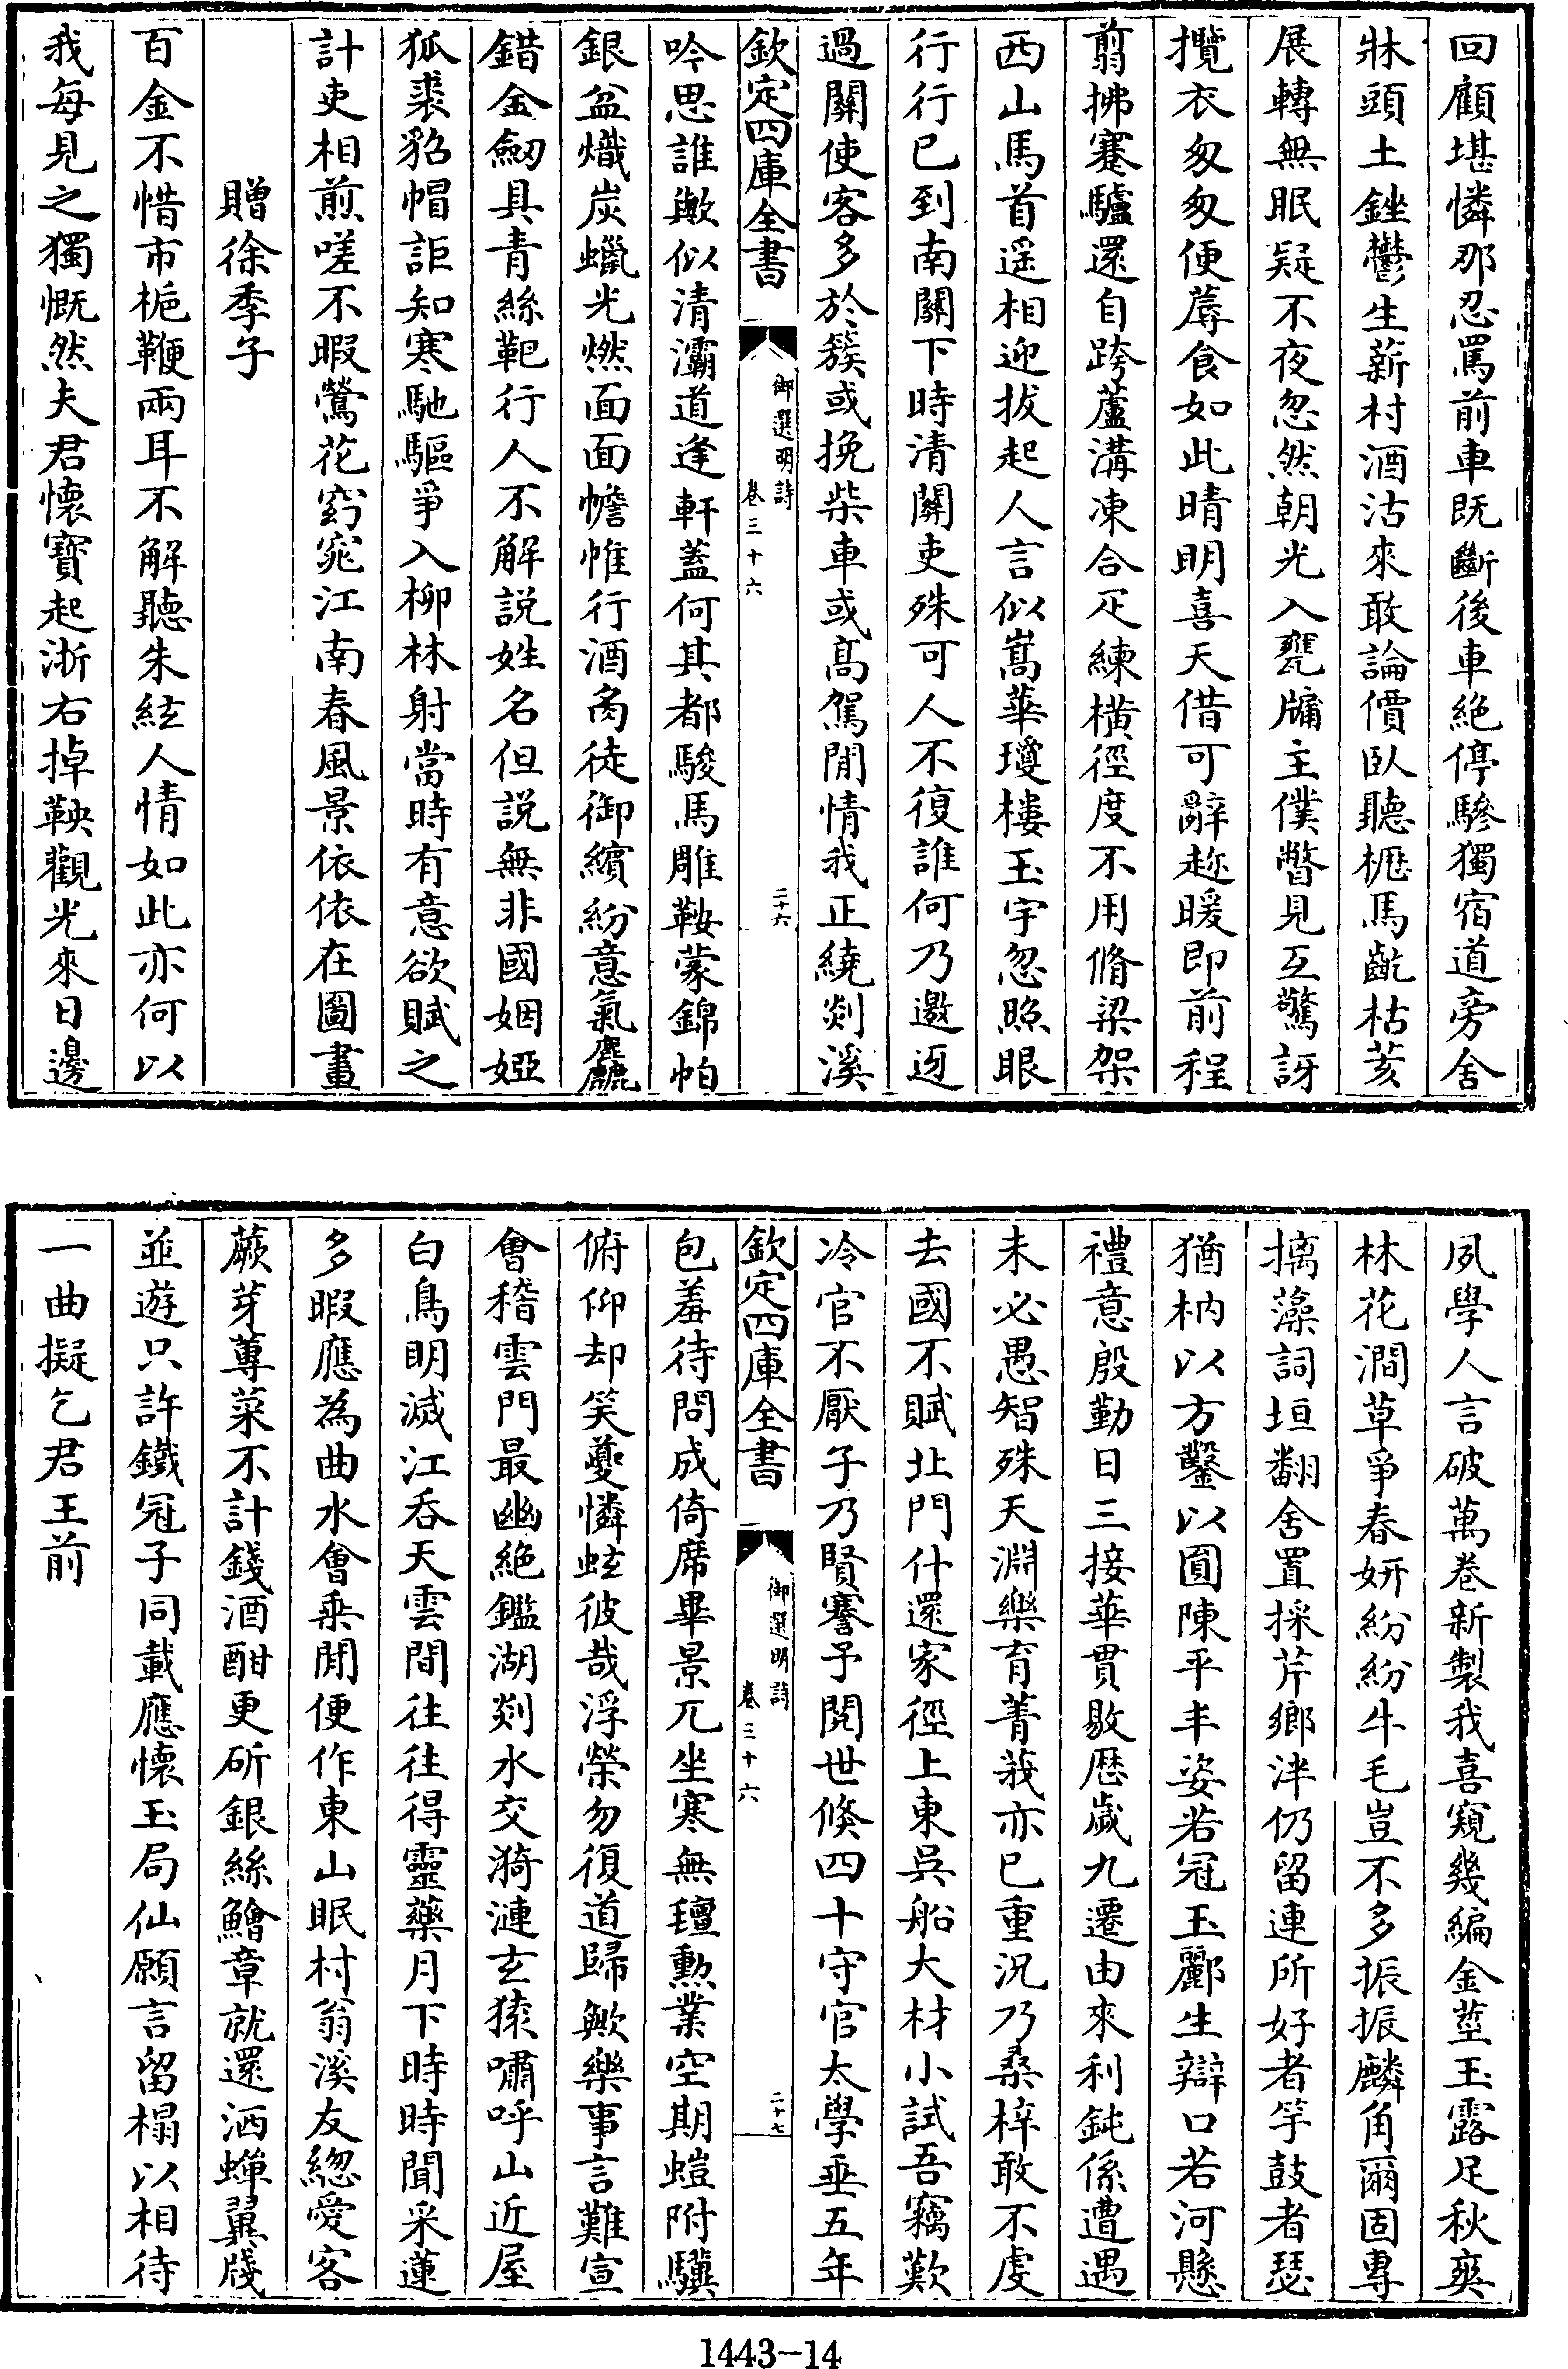 回顧堪憐那忍罵前車既斷後車絶停驂獨宿道旁舍
牀頭土銼鬱生薪村酒沽來敢論價臥聽櫪馬齕枯荄
展轉無眠疑不夜忽然朝光入甕牖主僕瞥見互驚訝
攬衣匆匆便蓐食如此晴明喜天借可辭趂暖即前程
翦拂蹇驢還自跨蘆溝凍合疋練橫徑度不用脩梁架
西山馬首遥相迎拔起人言似嵩華瓊樓玉宇忽照眼
行行已到南關下時清關吏殊可人不復誰何乃邀迓
過關使客多於簇或挽柴車或高駕閒情我正繞剡溪
欽定四庫全書
御選明詩
卷三十六
二十六
吟思誰歟似清灞道逢軒蓋何其都駿馬雕鞍蒙錦帕
銀盆熾炭蠟光燃面面幨帷行酒㕙徒御繽紛意氣麤
錯金劒具青絲靶行人不解説姓名但説無非國姻婭
狐裘貂帽詎知寒馳驅爭入柳林射當時有意欲賦之
計吏相煎嗟不暇鶯花窈窕江南春風景依依在圖畫
贈徐季子
百金不惜市桅鞭兩耳不解聽朱絃人情如此亦何以
我每見之獨慨然夫君懷寶起浙右掉鞅觀光來日邊
夙學人言破萬卷新製我喜窺幾編金莖玉露足秋爽
林花澗草爭春妍紛紛牛毛豈不多振振麟角爾固專
摛藻詞垣翻舍置採芹鄉泮仍留連所好者竽鼓者瑟
猶枘以方鑿以圓陳平丰姿若冠玉酈生辯口若河懸
禮意殷勤日三接華貫敭歴歲九遷由來利鈍係遭遇
未必愚智殊天淵樂育菁莪亦已重況乃桑梓敢不虔
去國不賦北門什還家徑上東吳船大材小試吾竊歎
冷官不厭子乃賢謇予閱世倐四十守官太學垂五年
欽定四庫全書
御選明詩
卷三十六
二十七
包羞待問成倚席畢景兀坐寒無氊勲業空期螘附驥
俯仰却笑夔憐蚿彼哉浮榮勿復道歸歟樂事言難宣
會稽雲門最幽絶鑑湖剡水交漪漣玄猿嘯呼山近屋
白鳥明滅江吞天雲間往往得靈藥月下時時聞采蓮
多暇應為曲水會乘閒便作東山眠村翁溪友緫愛客
蕨芽蓴菜不計錢酒酣更斫銀絲鱠章就還洒蟬翼牋
並遊只許鐵冠子同載應懷玉局仙願言留榻以相待
一曲擬乞君王前
1443-14